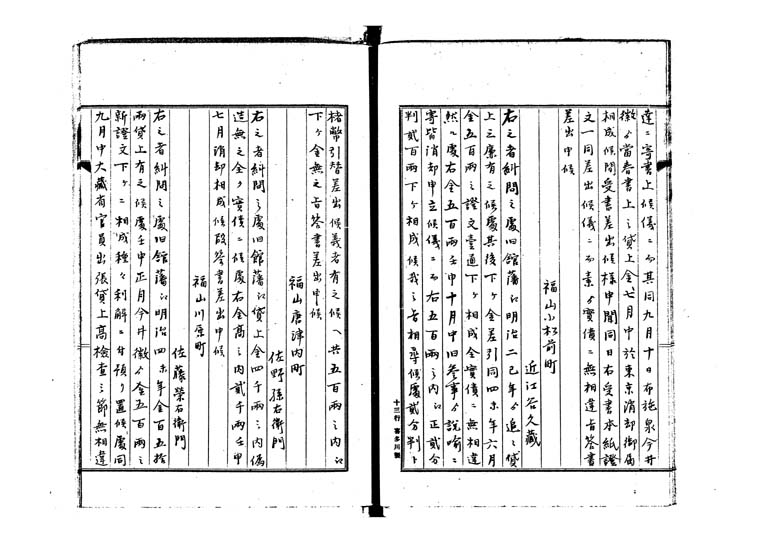 達ニ寄書上候儀ニ而其同九月十日布施泉今井
徴ゟ當春書上之貸上金七月中於東京消却御届
相成候間受書差出候様申聞同日右受書本紙證
文一同差出候儀ニ而素ゟ實債ニ無相違旨答書
差出申候
福山小松前町
近江谷久藏
右之者糾問之處旧館藩江明治二巳年ゟ追々貸
上三廉有之候處其後下ヶ金差引同四未年六月
金五百両之證文壹通下ヶ相成全實債ニ無相違
然ル處右金五百両壬申十月中旧参事ゟ説喩ニ
寄皆消却申立候儀ニ而右五百両之内江正貳分
判貳百両下ヶ相成候我之旨相尋候處貳分判ト
楮幣引替差出候義者有之候ヘ共五百両之内江
下ヶ金無之旨答書差出申候
福山唐津内町
佐野孫右衛門
右之者糾問之處旧館藩江貸上金四千両之内偽
造無之全ク實債ニ候處右金高之内貳千両壬申
七月消却相成候段答書差出申候
福山川原町
佐藤榮右衛門
右之者糾問之處旧館藩江明治四未年金百五拾
両貸上有之候處壬申正月今井徴ゟ金五百両之
新證文下ヶニ相成種々利解ニ付預り置候處同
九月中大藏省官員出張貸上高檢査之節無相違
十三行 喜多川製